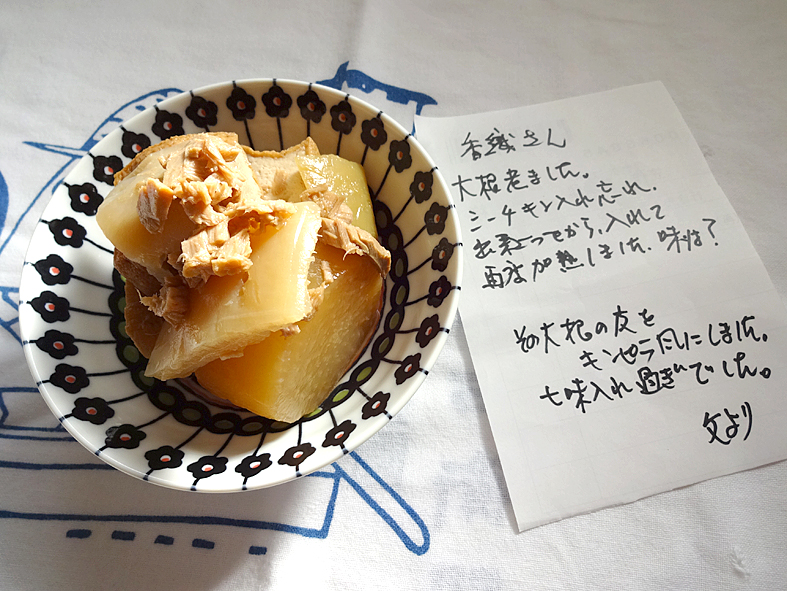 香織さん
大根煮ました。
シーチキン入れ忘れ、
出来上ってから、入れて
再度加熱しました。味は?
その大根の皮を
キンピラ風にしました。
七味入れ過ぎでした。
文より